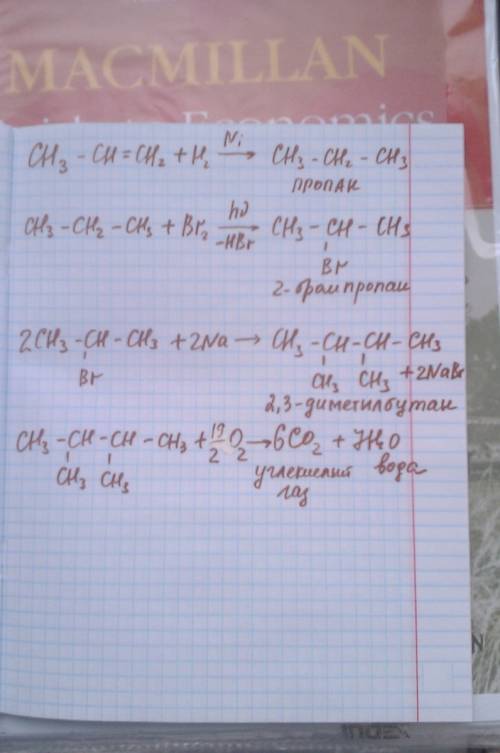 MACMILLAN
Economics
CH3 - CH = CH2 + H2 →(Ni) CH3 - CH2 - CH3
пропан
CH3 - CH2 - CH3 + Br2 →(hν, -HBr) CH3 - CH - CH3
Br
2-бромпропан
2CH3 - CH - CH3 + 2Na → CH3 - CH - CH - CH3
Br CH3 CH3 + 2NaBr
2,3-диметилбутан
CH3 - CH - CH - CH3 + 19/2 O2 → 6CO2 + 7H2O
CH3 CH3 углекислый вода
газ
INDEX